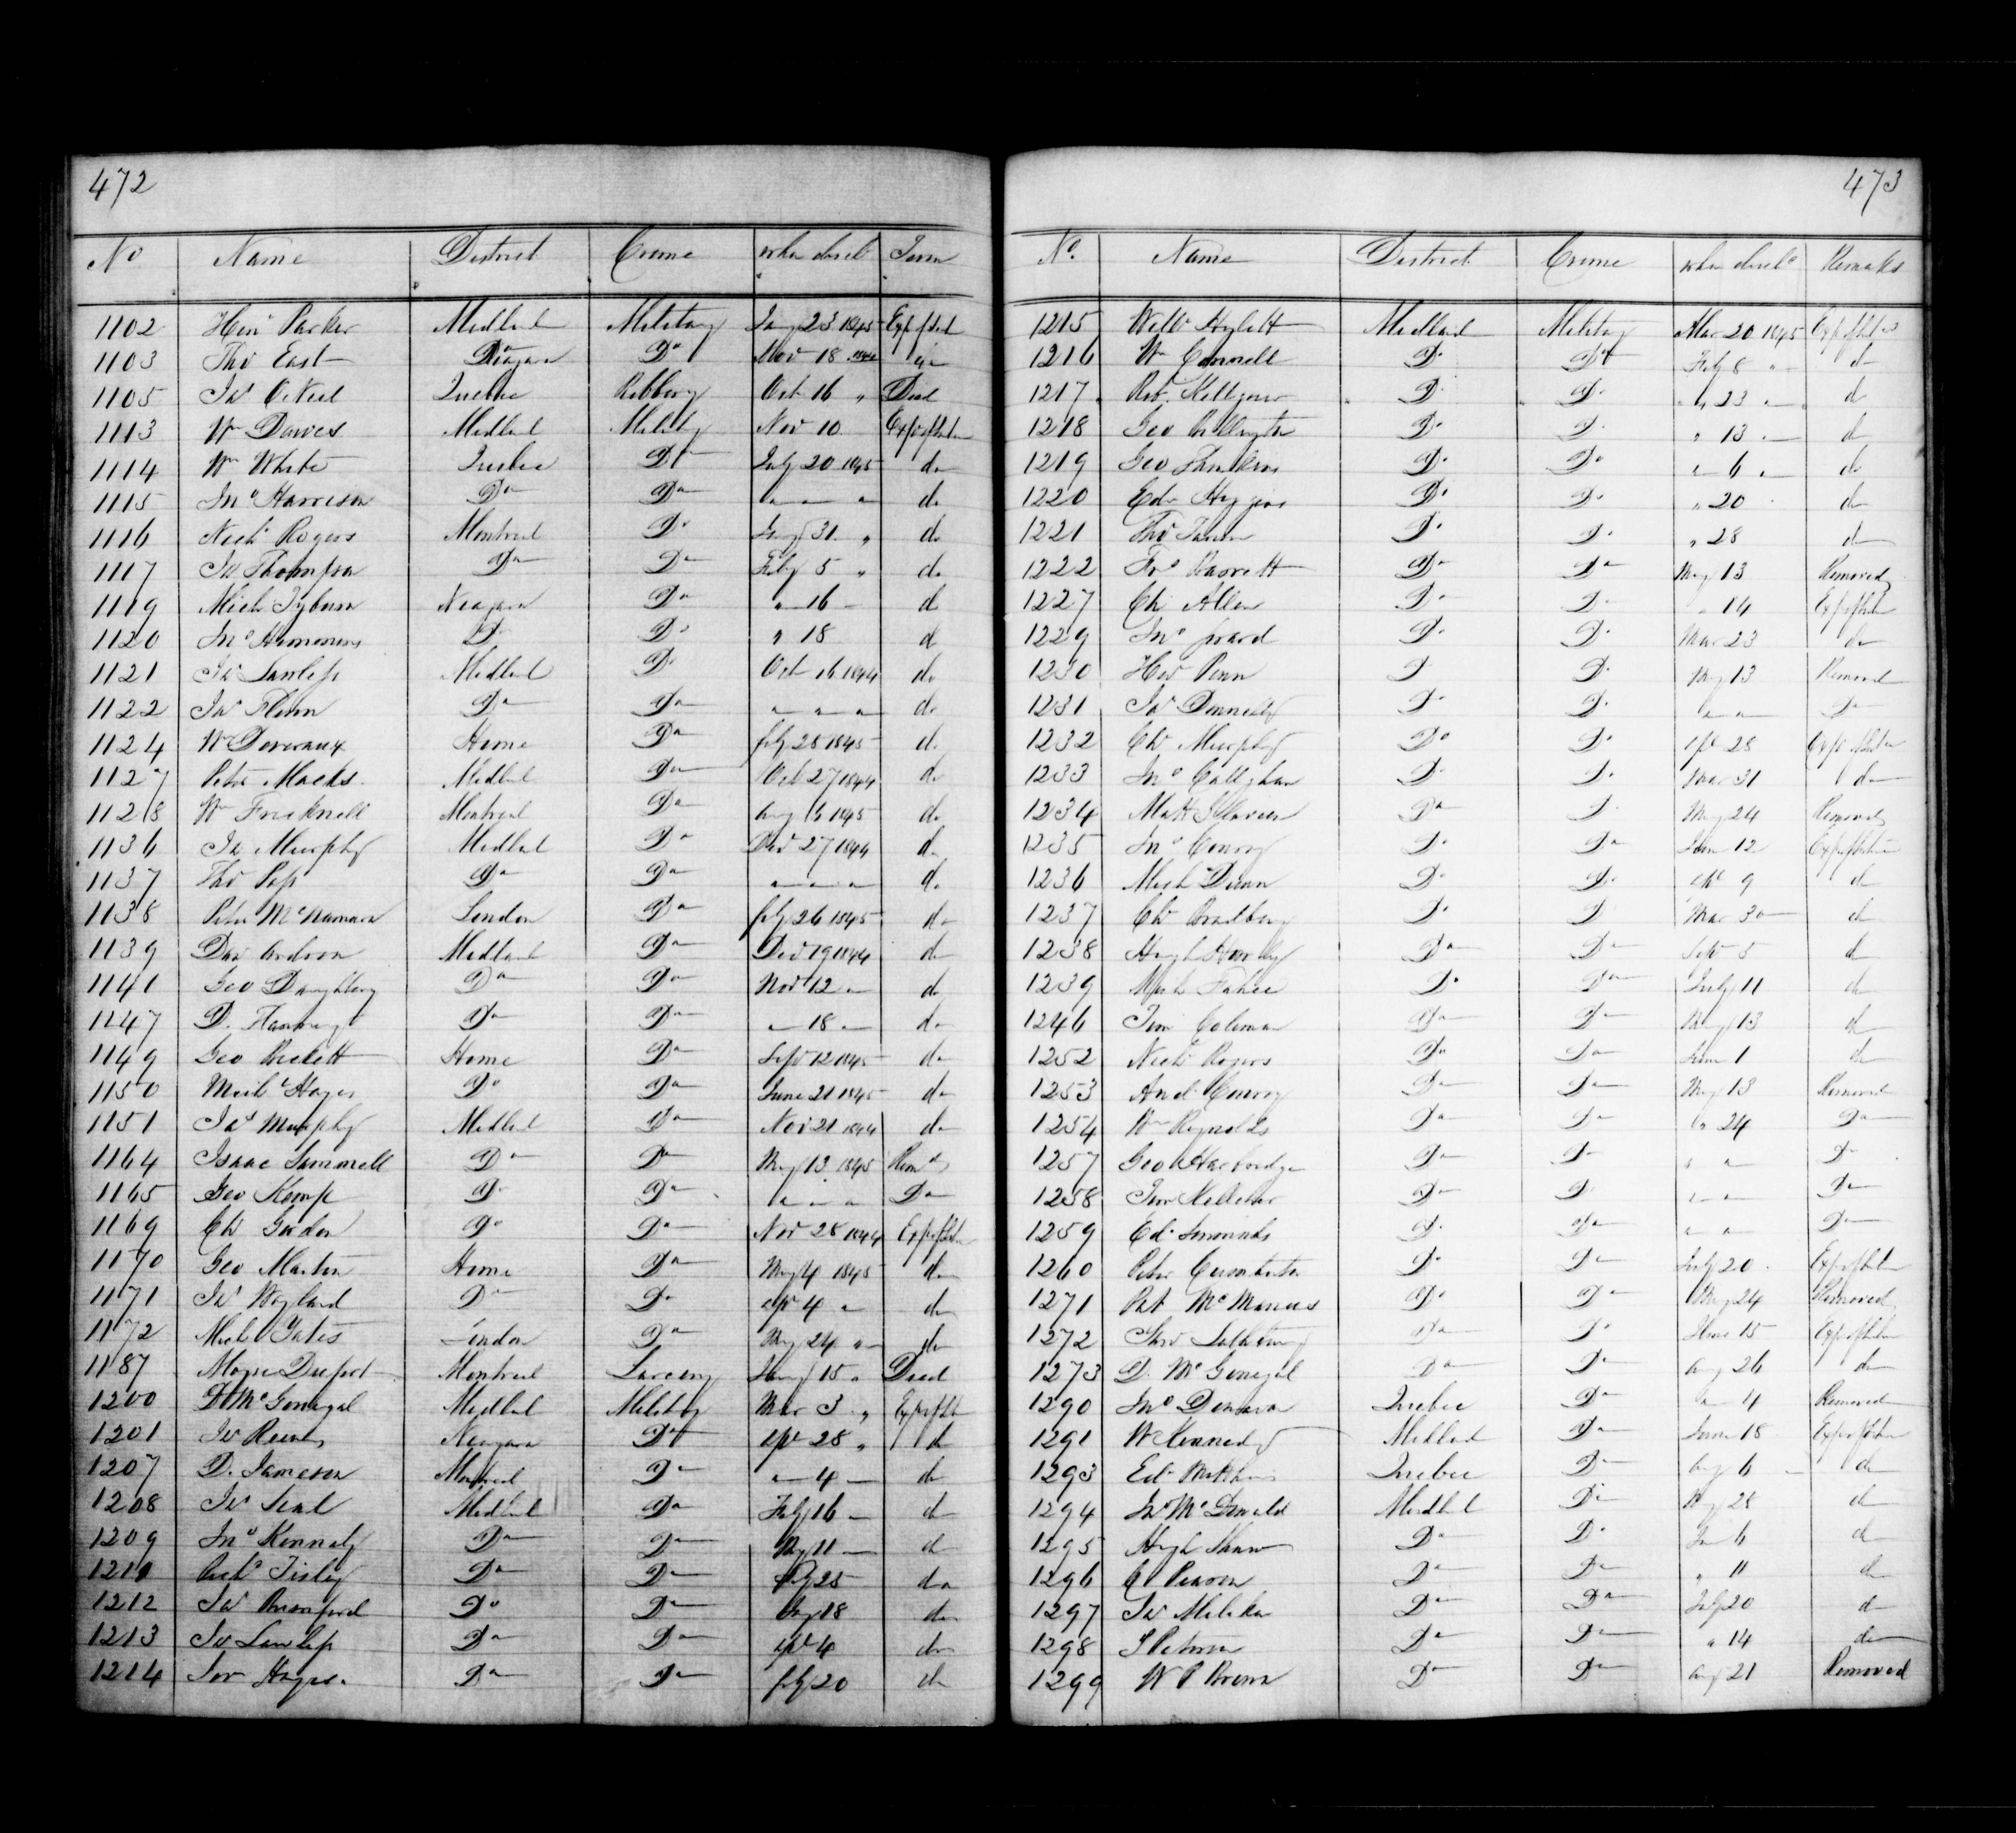 472
No Name District Crime when disch Term
1102 Heny Parker Midland Military Jany 23 1845 Exp of Sent
1103 Tho East Niagara Do Nov 18 1844
1105 Jas O'Neil Quebec Robbery Oct 16 " Died
1113 Wm Davies Midland Military Nov 10 Exp of Sent
1114 Wm White Quebec Do July 20 1845 do
1115 Jno Harrison Do Do " " " do
1116 Nichs Rogers Montreal Do Jany 31 " do
1117 Js Thompson Do Do Feby 5 " do
1119 Mich Tyburn Niagara Do " 16 do
1120 Jno Simmons Do Do " 18 do
1121 Js Lawless Midland Do Oct 16 1844 do
1122 Jas Flinn Do Do " " " do
1124 Wm Deveraux Home Do feby 28 1845 do
1127 Peter Macks Midland Do Oct 27 1844 do
1128 Wm Fricknell Montreal Do 1845 do
1136 Js Murphy Midland Do Decr 27 1844 do
1137 Tho Do Do " " " do
1138 Peter McNamara London Do feby 26 1845 do
1139 Dav Midland Do Decr 19 1844 do
1141 Geo Daughtery Do Do Novr 12 " do
1147 D. Do Do " 18 " do
1149 Geo Home Do Sept 12 1845 do
1150 Michl Hayes Do Do June 21 1845 do
1151 Jas Murphy Midland Do Nov 21 1844 do
1164 Isaac Sammell Do Do May 13 1845 Remd
1165 Geo Kemp Do Do " " " Do
1169 Chs Gordon Do Do Nov 28 1844 Exp of Sent
1170 Geo Martin Home Do May 4 1845 do
1171 Js Wayland Do Do apr 4 " do
1172 Michl Yates London Do May 24 " do
1187 Moyse Montreal Larceny 15 " Died
1200 D McGonegal Midland Military Mar 3 " Exp of Sent
1201 Js Reeves Niagara Do apl 28 " do
1207 D. Jameson Montreal Do " 4 do
1208 Js Seal Midland Do Feby 16 do
1209 Jno Kennedy Do Do 11 do
1210 Tisley Do Do 25 do
1212 Js Do Do 18 do
1213 Js Lawless Do Do apl 4 do
1214 Hayes Do Do feby 20 do
473
No. Name District Crime when disch Remarks
1215 Midland Military Mar 20 1845 Exp of Sent
1216 Wm Connell Do Do Feby 8 " do
1217 Rob. Do Do " 23 do
1218 Geo Do Do " 13 do
1219 Geo Do Do " 6 do
1220 Edw Higgins Do Do " 20 do
1221 Tho Do Do " 28 do
1222 Barrett Do Do May 13 Removed
1227 Ch Allen Do Do " 14 Exp of Sent
1229 Jno Do Do Mar 23 do
1230 Penn Do Do May 13 Removed
1231 Jas Donnelly Do Do " " Do
1232 Chs Murphy Do Do apl 28 Exp of Sent
1233 Jno Callaghan Do Do Mar 31 do
1234 Matt Slaven Do Do May 24 Removed
1235 Jno Conroy Do Do June 12 Exp of Sent
1236 Mich Dunn Do Do 9 do
1237 Chs Bradbury Do Do Mar 30 do
1238 Hugh Do Do 5 do
1239 Mich Fahee Do Do July 11 do
1246 Jim Coleman Do Do May 13 do
1252 Nichs Rogers Do Do June 1 do
1253 And Conroy Do Do May 13 Removed
1254 Wm Reynolds Do Do " 24 Do
1257 Geo Harbridge Do Do " " Do
1258 Jim Kelleher Do Do " " Do
1259 Ed Simmonds Do Do " " Do
1260 Peter Do Do July 20 Exp of Sent
1271 Pat McManus Do Do May 24 Removed
1272 Do Do June 15 Exp of Sent
1273 D. McGonegal Do Do aug 26 do
1290 Jno Quebec Do " 4 Removed
1291 W Kennedy Midland Do June 18 Exp of Sent
1293 Ed Quebec Do aug 6 do
1294 McDonald Midland Do 28 do
1295 Hugh Shaw Do Do 6 do
1296 C Pearson Do Do " 11 do
1297 Js Do Do July 20 do
1298 Do Do " 14 do
1299 W P Brown Do Do aug 21 Removed